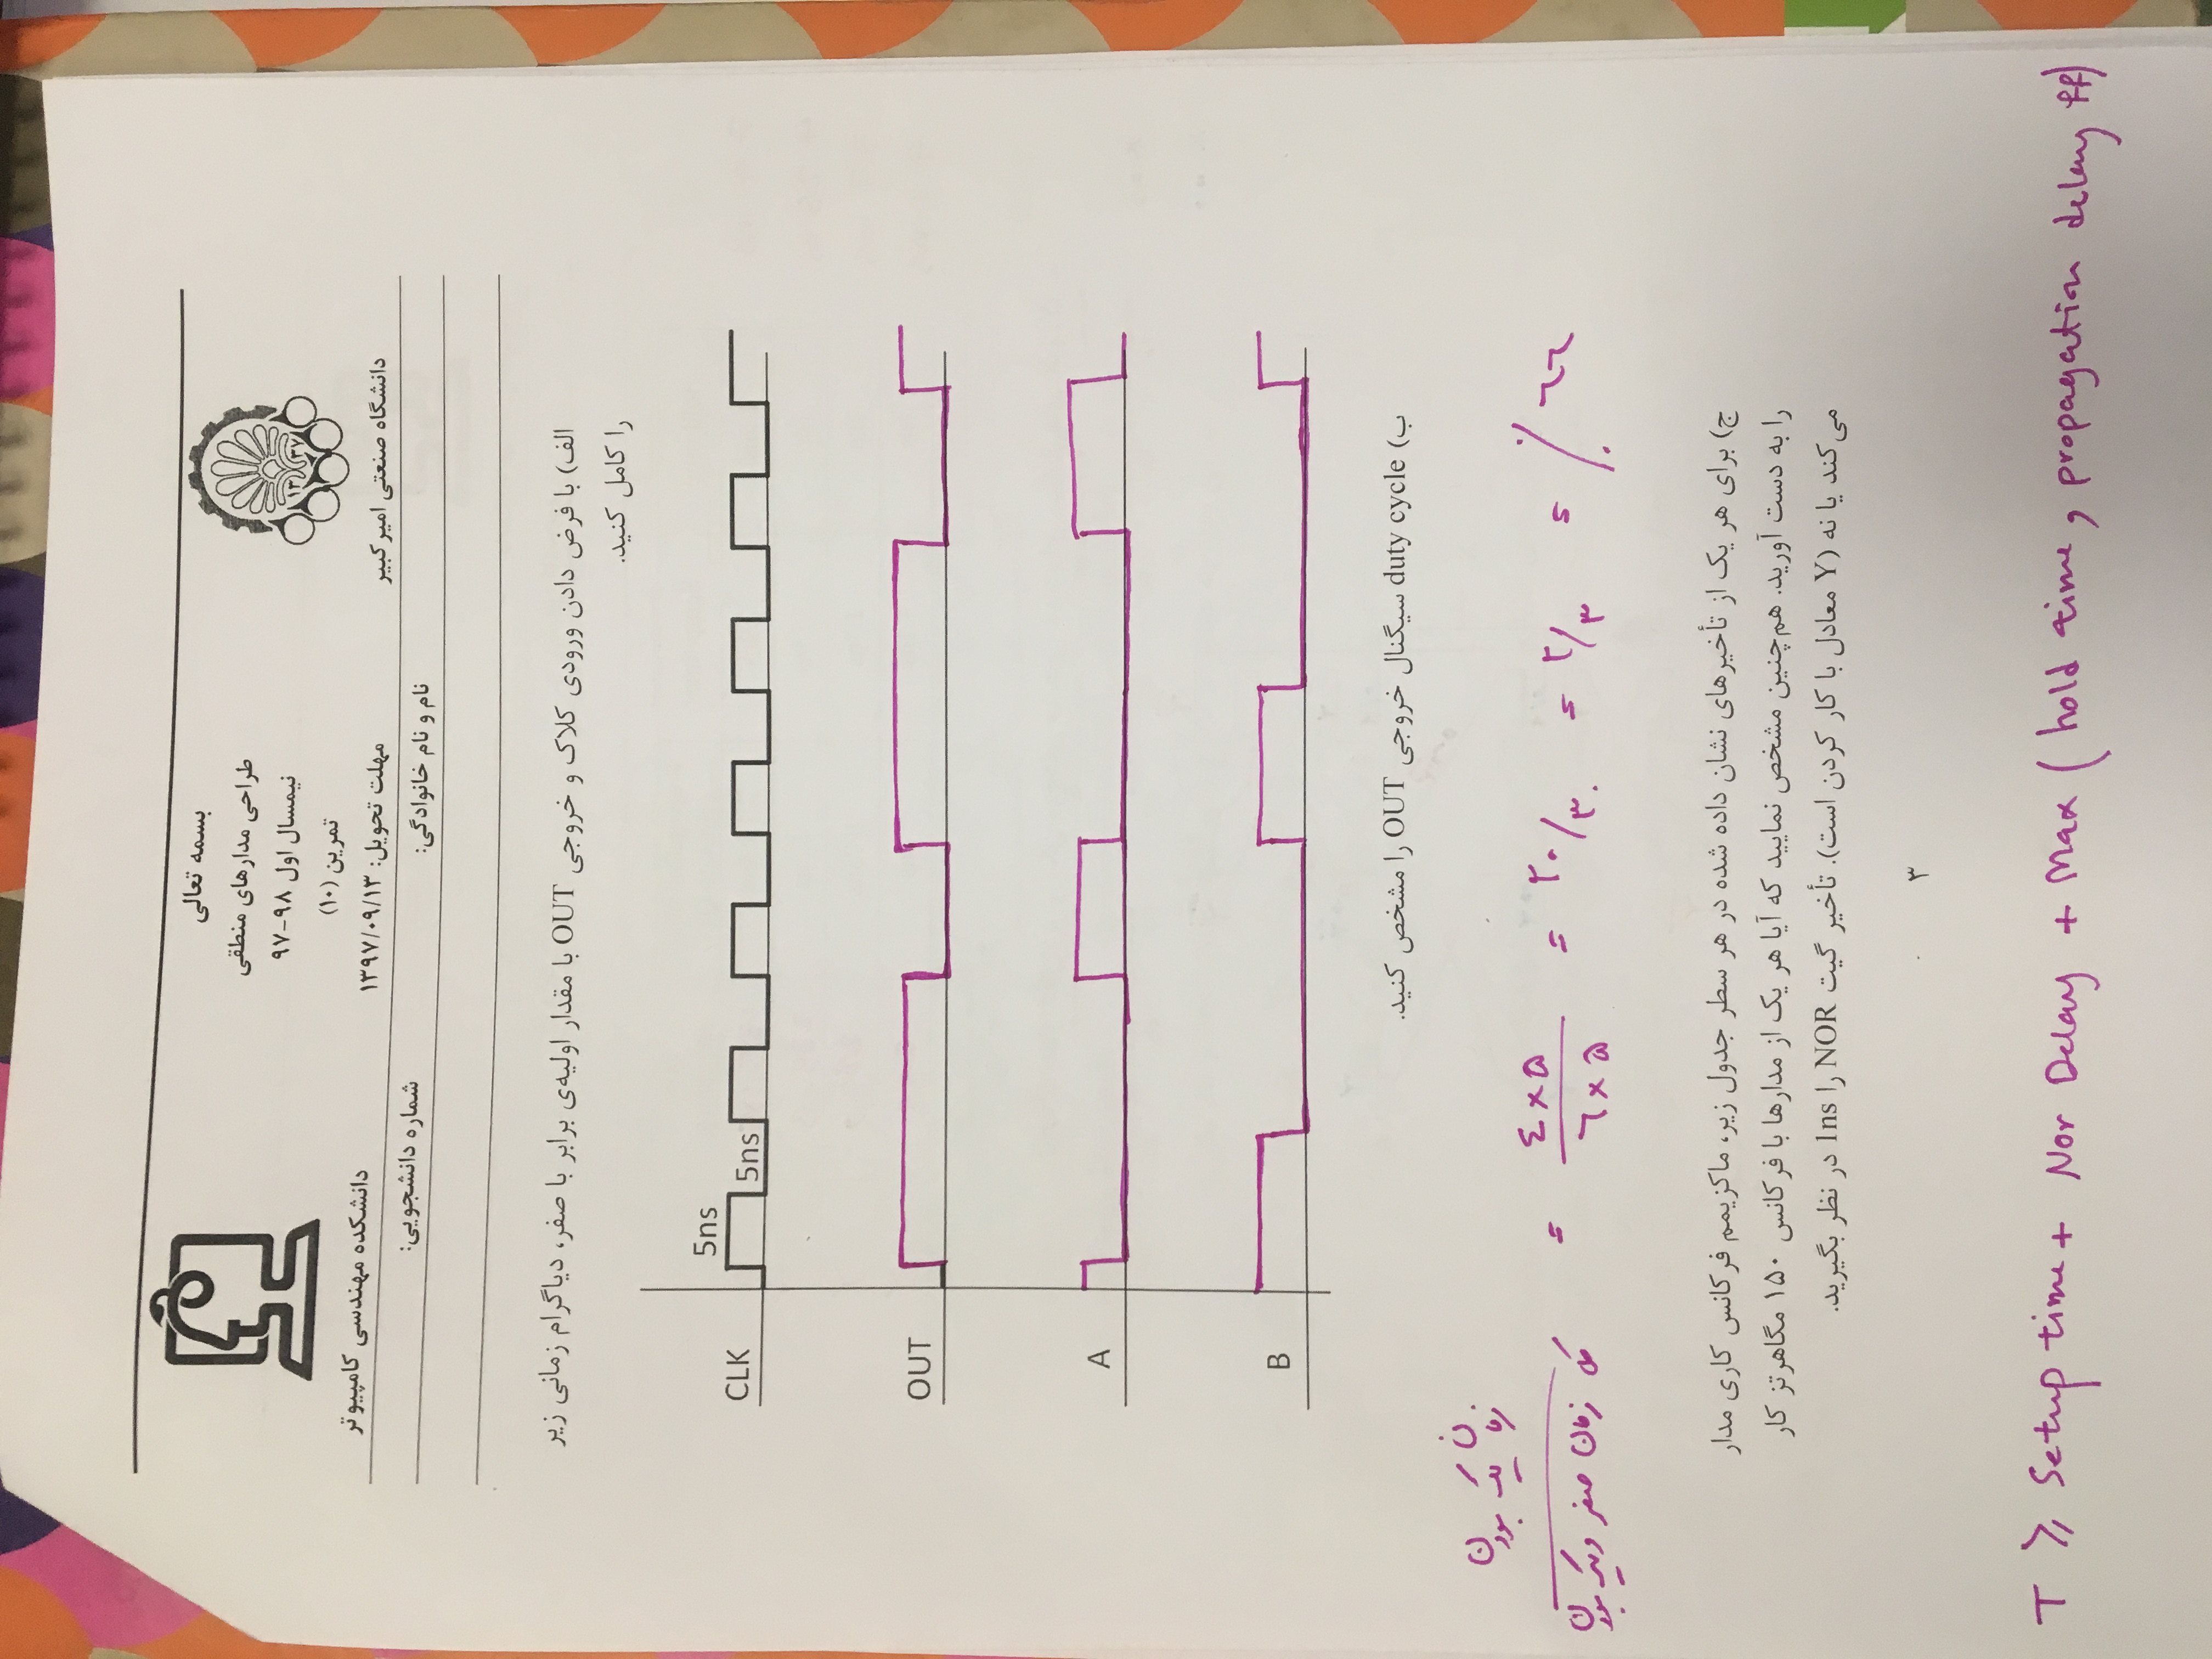 بسمه تعالی
طراحی مدارهای منطقی
نیمسال اول ۹۸-۹۷
تمرین (۱۰)
مهلت تحویل: ۱۳۹۷/۰۹/۱۳
۱۳ ۳۷
دانشگاه صنعتی امیرکبیر
دانشکده مهندسی کامپیوتر
نام و نام خانوادگی: شماره دانشجویی:
الف) با فرض دادن ورودی کلاک و خروجی OUT با مقدار اولیه‌ی برابر با صفر، دیاگرام زمانی زیر
را کامل کنید.
5ns
CLK 5ns
OUT
A
B
ب) duty cycle سیگنال خروجی OUT را مشخص کنید.
زمان یک بودن
کل زمان صفر و یک بودن
= ٤×۵ / ٦×۵ = ۲۰/۳۰ = ۲/۳ = ٪ ٦٦
ج) برای هر یک از تأخیرهای نشان داده شده در هر سطر جدول زیر، ماکزیمم فرکانس کاری مدار
را به دست آورید. هم‌چنین مشخص نمایید که آیا هر یک از مدارها با فرکانس ۱۵۰ مگاهرتز کار
می‌کند یا نه (Y معادل با کار کردن است). تأخیر گیت NOR را 1ns در نظر بگیرید.
۳
T ⩾ Setup time + Nor Delay + Max ( hold time , propagation delay ff)